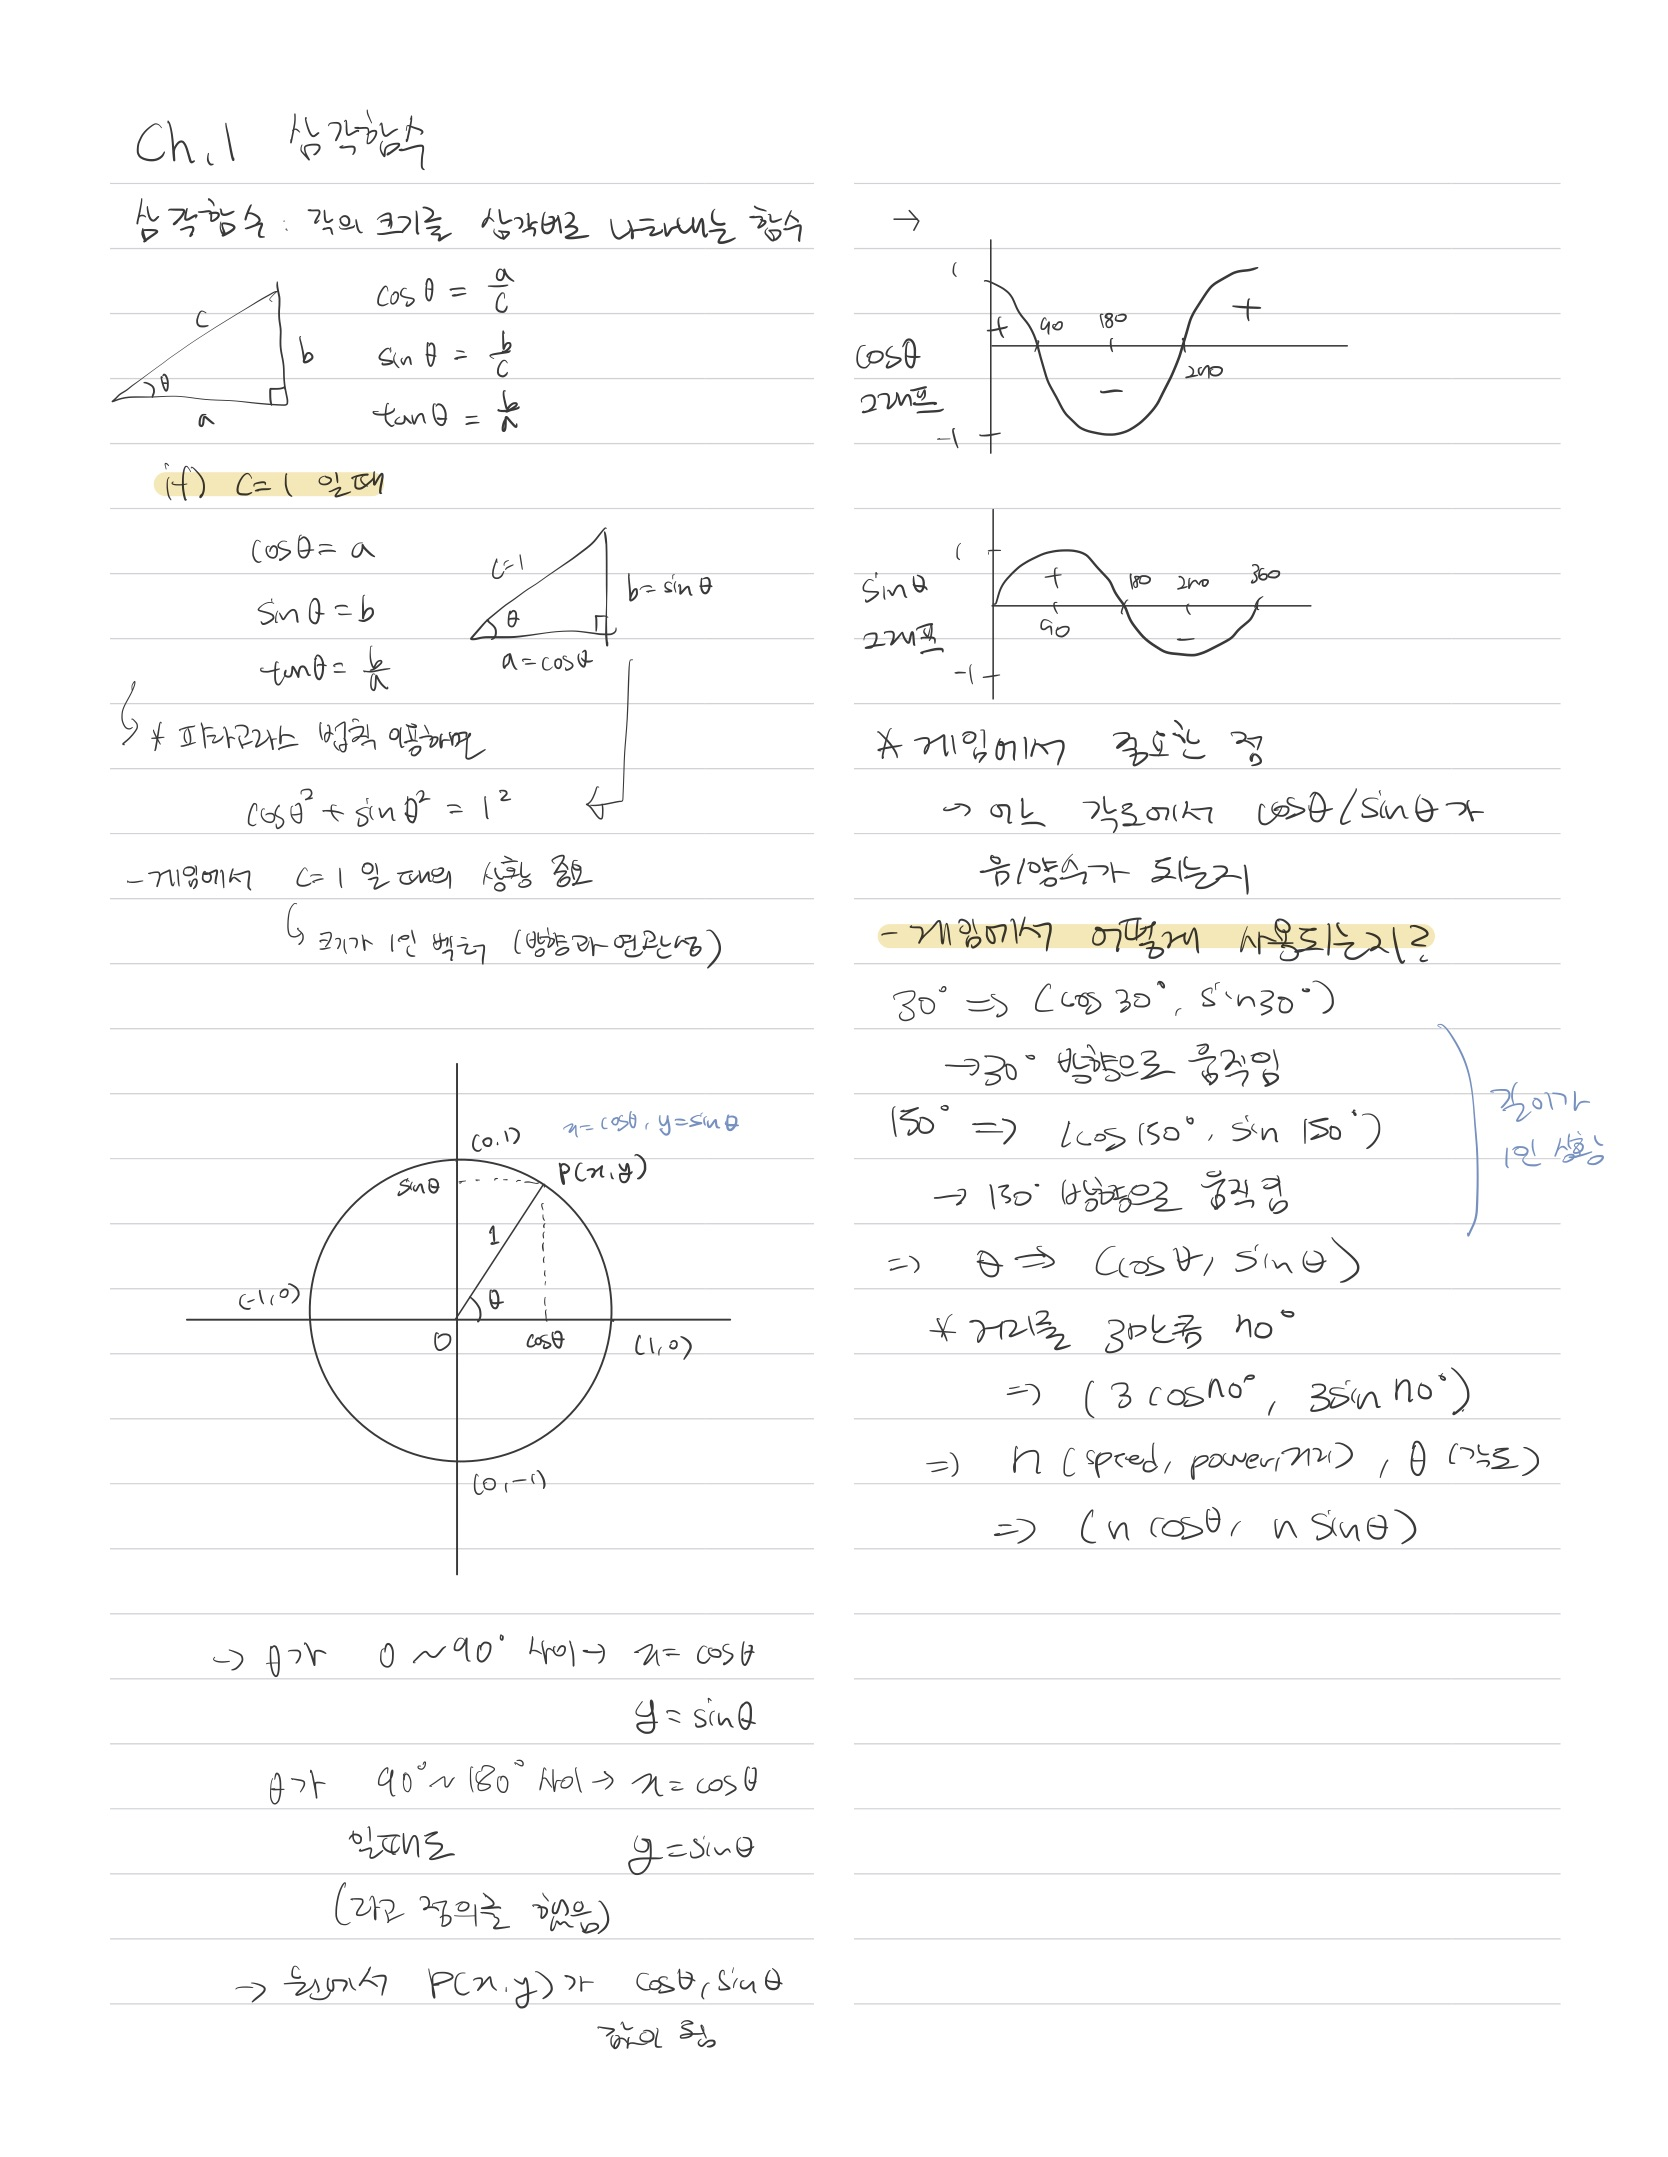 Ch.1 삼각함수
삼각함수 : 각의 크기를 삼각비로 나타내는 함수
c
b
θ
a
cosθ = a/c
sinθ = b/c
tanθ = b/a
if) c=1 일때
cosθ = a
sinθ = b
tanθ = b/a
c=1
θ
b=sinθ
a=cosθ
* 피타고라스 법칙 이용하면
cosθ² + sinθ² = 1²
- 게임에서 c=1 일 때의 상황 중요
크기가 1인 벡터 (방향과 연관성)
x=cosθ, y=sinθ
(0,1)
P(x,y)
sinθ
1
(-1,0)
θ
0
cosθ
(1,0)
(0,-1)
→ θ가 0 ~ 90° 사이 → x = cosθ
y = sinθ
θ가 90° ~ 180° 사이 → x = cosθ
일때도 y = sinθ
(라고 정의를 했음)
→ 원에서 P(x,y)가 cosθ, sinθ
값이 됨
→
1
+
90
180
+
cosθ
270
그래프
-
-1
1
sinθ
+
180
270
360
90
그래프
-
-1
* 게임에서 중요한 점
→ 어느 각도에서 cosθ/sinθ가
음/양수가 되는지
- 게임에서 어떻게 사용되는지?
30° ⇒ (cos30°, sin30°)
→ 30° 방향으로 움직임
150° ⇒ (cos150°, sin150°)
→ 130° 방향으로 움직임
길이가
1인 상황
⇒ θ ⇒ (cosθ, sinθ)
* 거리를 3만큼 70°
⇒ (3cos70°, 3sin70°)
⇒ n (speed, power, 거리), θ (각도)
⇒ (n cosθ, n sinθ)